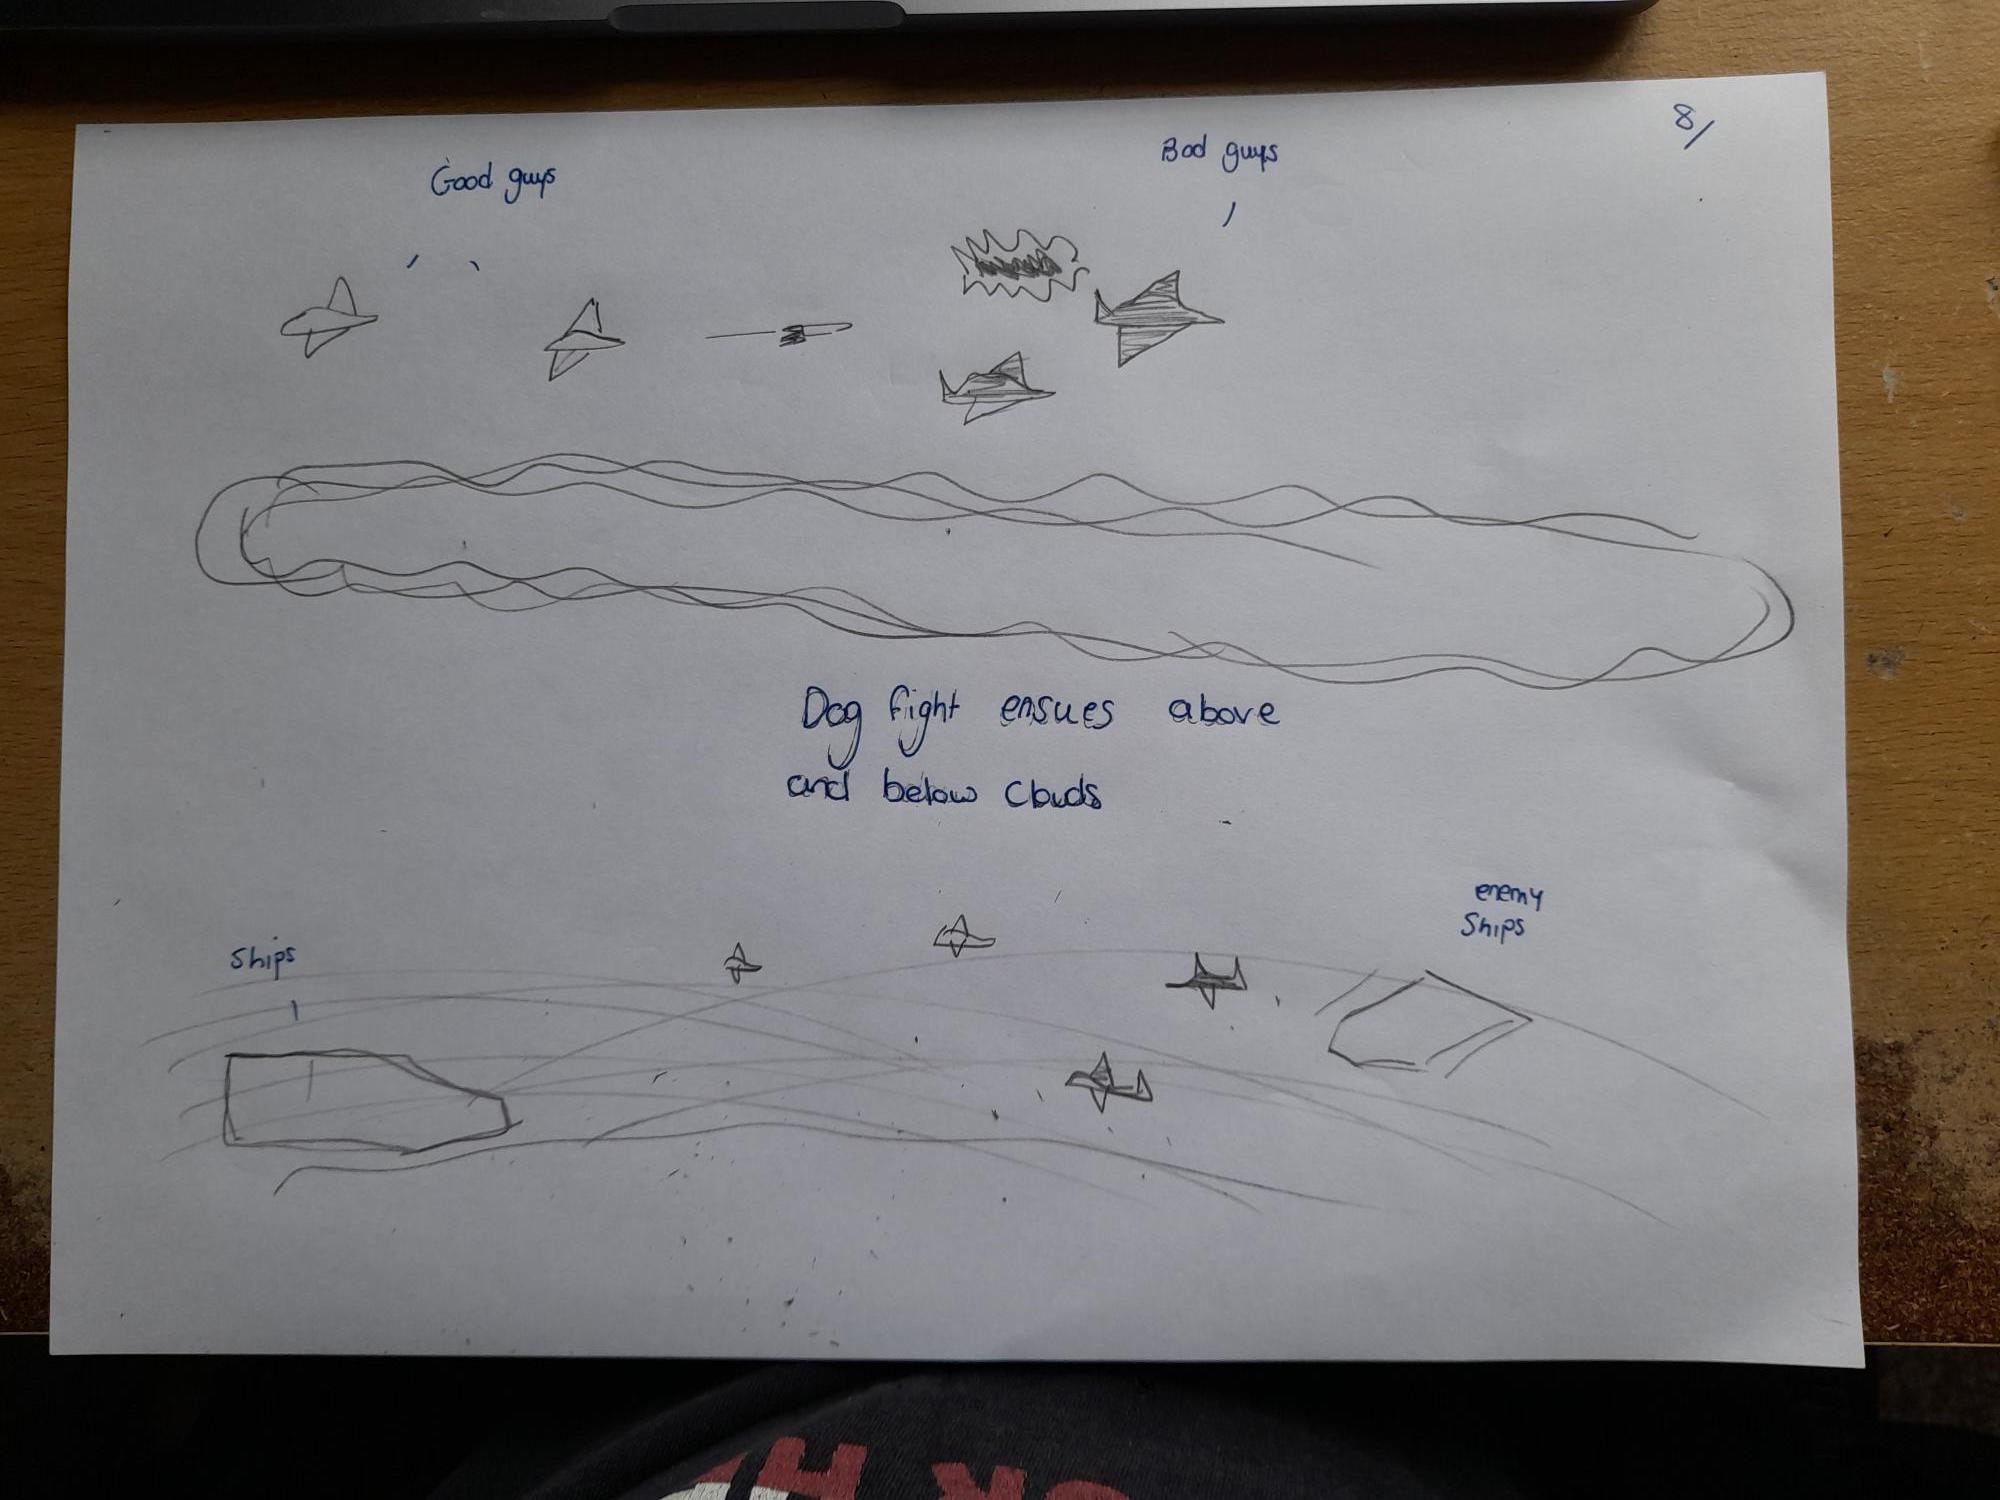 8/
Good guys
Bad guys
Dog fight ensues above
and below clouds
enemy
Ships
Ships